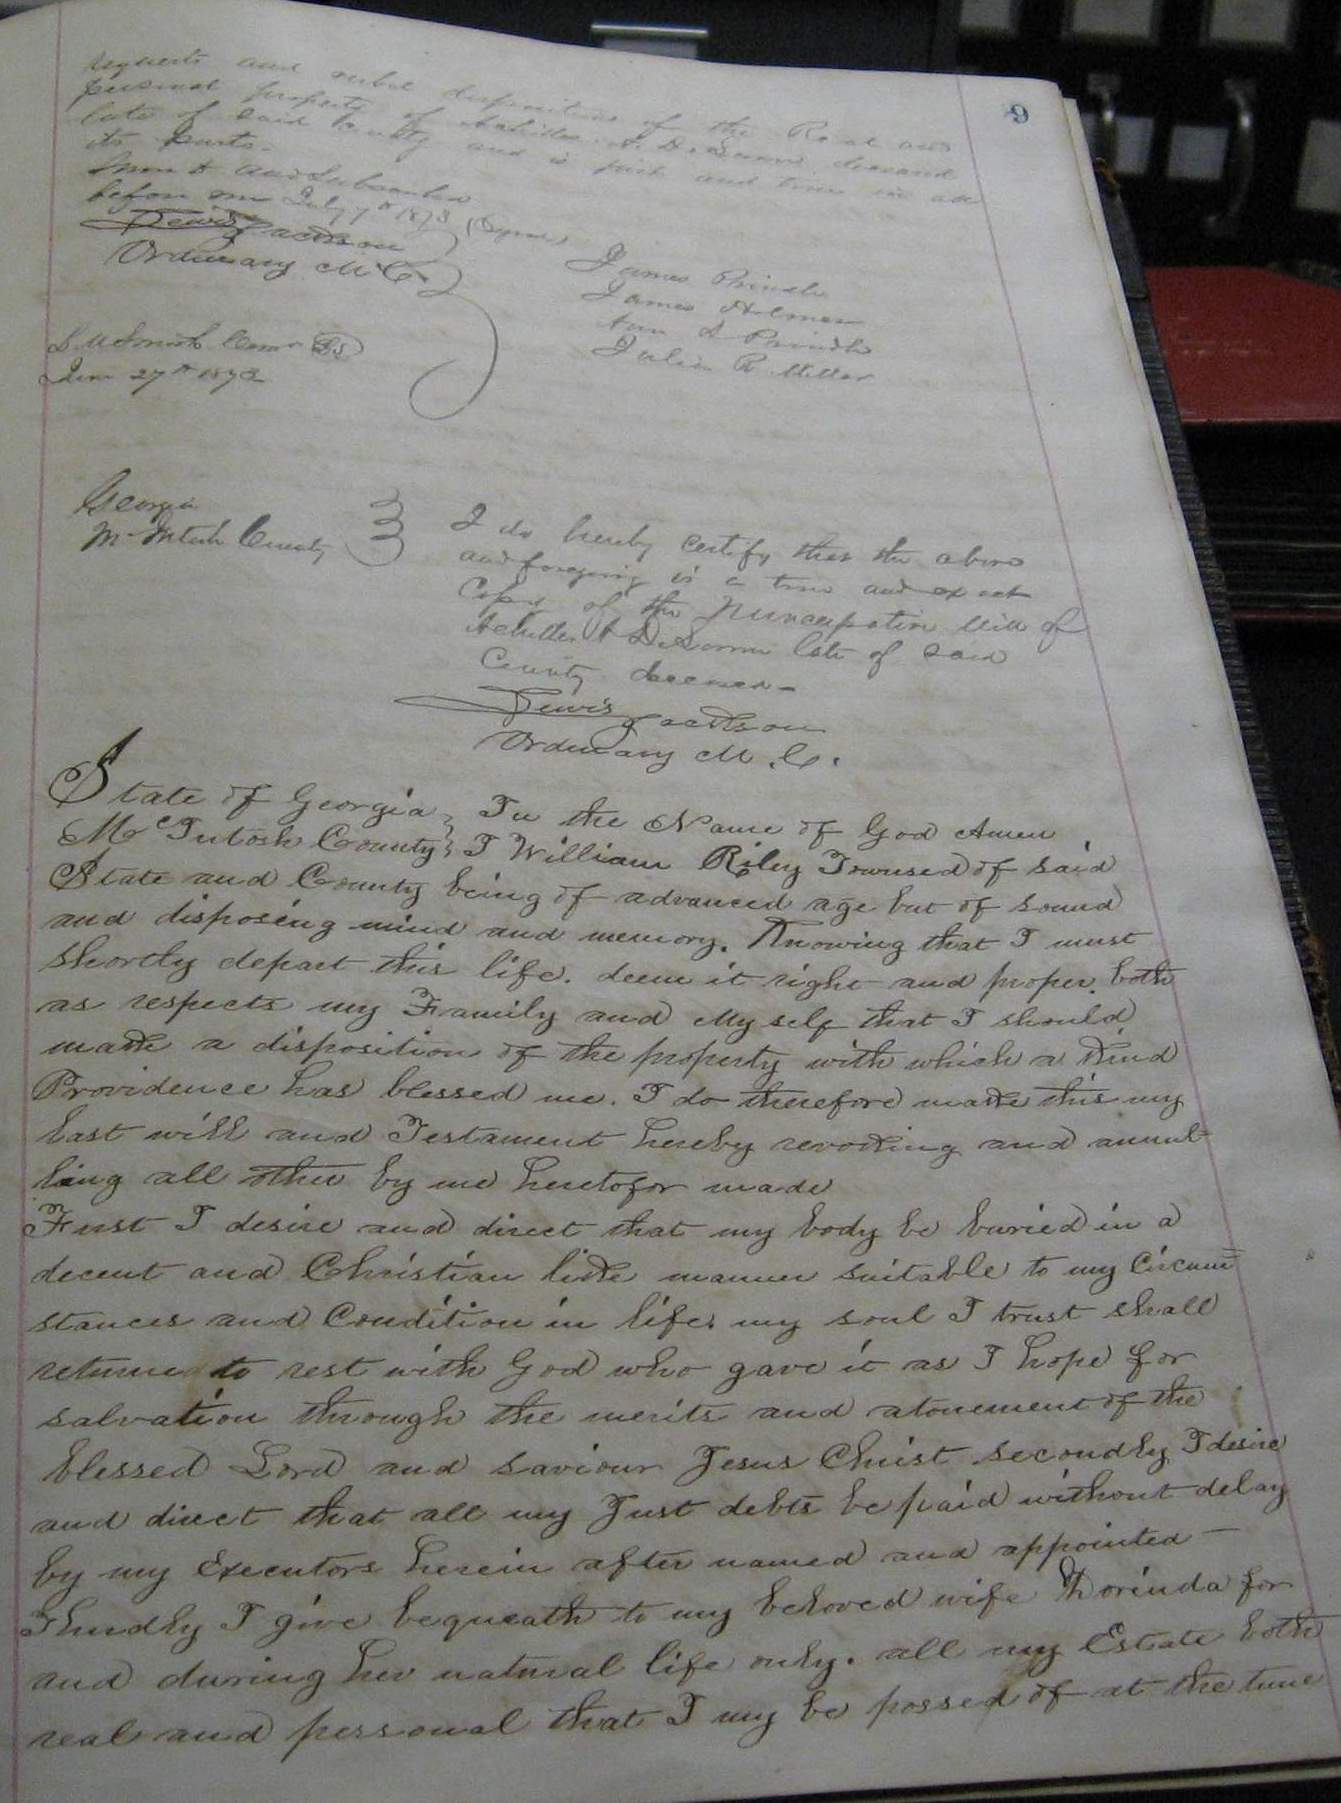 9
requests and verbal disposition of the Real and
personal property of Achilles A. DeLorme deceased
late of said County and is just and true in all
its parts.
Sworn to and Subscribed
before me July 7th 1873 (Signed)
Lewis Jackson
Ordinary M.C.
James
James Holmes
Ann S
Julia R Miller
June 27th 1873
Georgia
McIntosh County
I do hereby certify that the above
and foregoing is a true and exact
Copy of the Nuncupative Will of
Achilles A DeLorme late of said
County deceased
Lewis Jackson
Ordinary M.C.
State of Georgia, In the Name of God Amen
McIntosh County, I William Riley Townsed of said
State and County being of advanced age but of sound
and disposing mind and memory. Knowing that I must
shortly depart this life. deem it right and proper. both
as respects my Family and My self that I should
make a disposition of the property with which a Kind
Providence has blessed me. I do therefore make this my
last will and Testament hereby revoking and annul-
ling all other by me heretofor made
First I desire and direct that my body be buried in a
decent and Christian like manner suitable to my Circum=
stances and Condition in life. my soul I trust shall
returne to rest with God who gave it as I hope for
salvation through the merits and atonement of the
blessed Lord and saviour Jesus Christ secondly I desire
and direct that all my Just debts be paid without delay
by my Executors herein after named and appointed —
Thirdly I give bequeath to my beloved wife Dorinda for
and during her natural life only. all my Estate both
real and personal that I my be possed of at the time